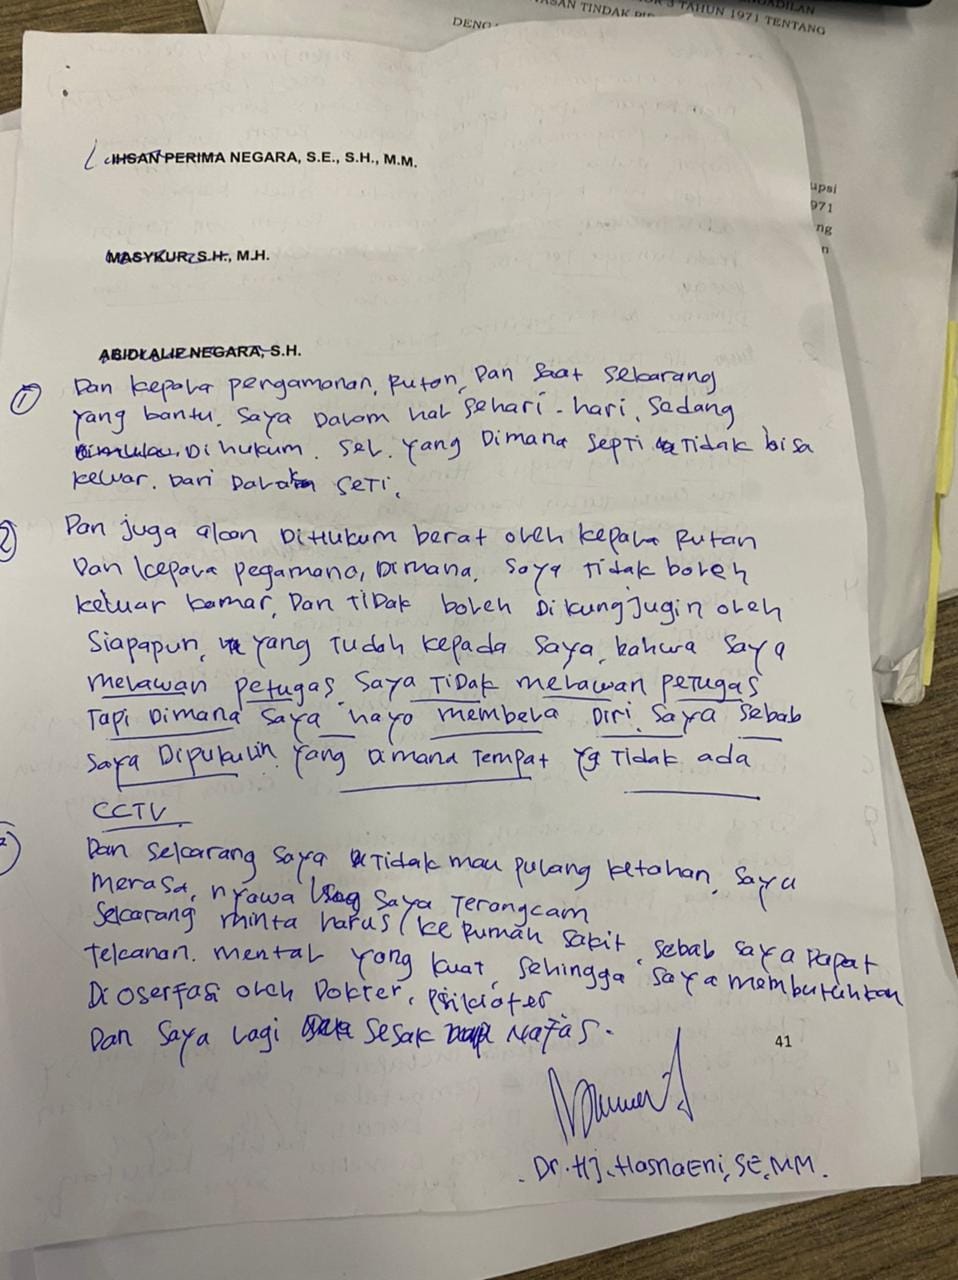 ADILAN
3 TAHUN 1971 TENTANG
ASAN TINDAK PI
DENG
IHSAN PERIMA NEGARA, S.E., S.H., M.M.
upsi
971
ng
n
MASYKUR, S.H., M.H.
ABIDI ALIE NEGARA, S.H.
1 Dan kepala pengamanan, Rutan, Dan saat sekarang
yang bantu. Saya Dalam hal sehari-hari, Sedang
Di hukum. Sel. yang Dimana SepTi Tidak bisa
keluar. Dari Dalam SeTi.
2 Dan juga akan DiHukum berat oleh kepala Rutan
Dan kepala pegamana, Dimana. Saya Tidak boleh
keluar kamar, Dan TiDak boleh Dikungjugin oleh
Siapapun, yang Tudah kepada Saya, bahwa Saya
melawan petugas. Saya TiDak melawan petugas
Tapi Dimana Saya hayo membela Diri Saya Sebab
Saya Dipukulin. Yang Dimana Tempat yg Tidak ada
CCTV
Dan Sekarang Saya Tidak mau pulang ketahan. Saya
Merasa, nyawa Saya Terangcam
Sekarang minta harus ke Rumah Sakit, Sebab Saya Dapat
Tekanan. mental yang kuat, Sehingga Saya membutuhkan
Di oserfasi oleh Dokter, psikiater
Dan Saya lagi Sesak Nafas.
41
Dr. Hj. HasnaEni, SE, MM.